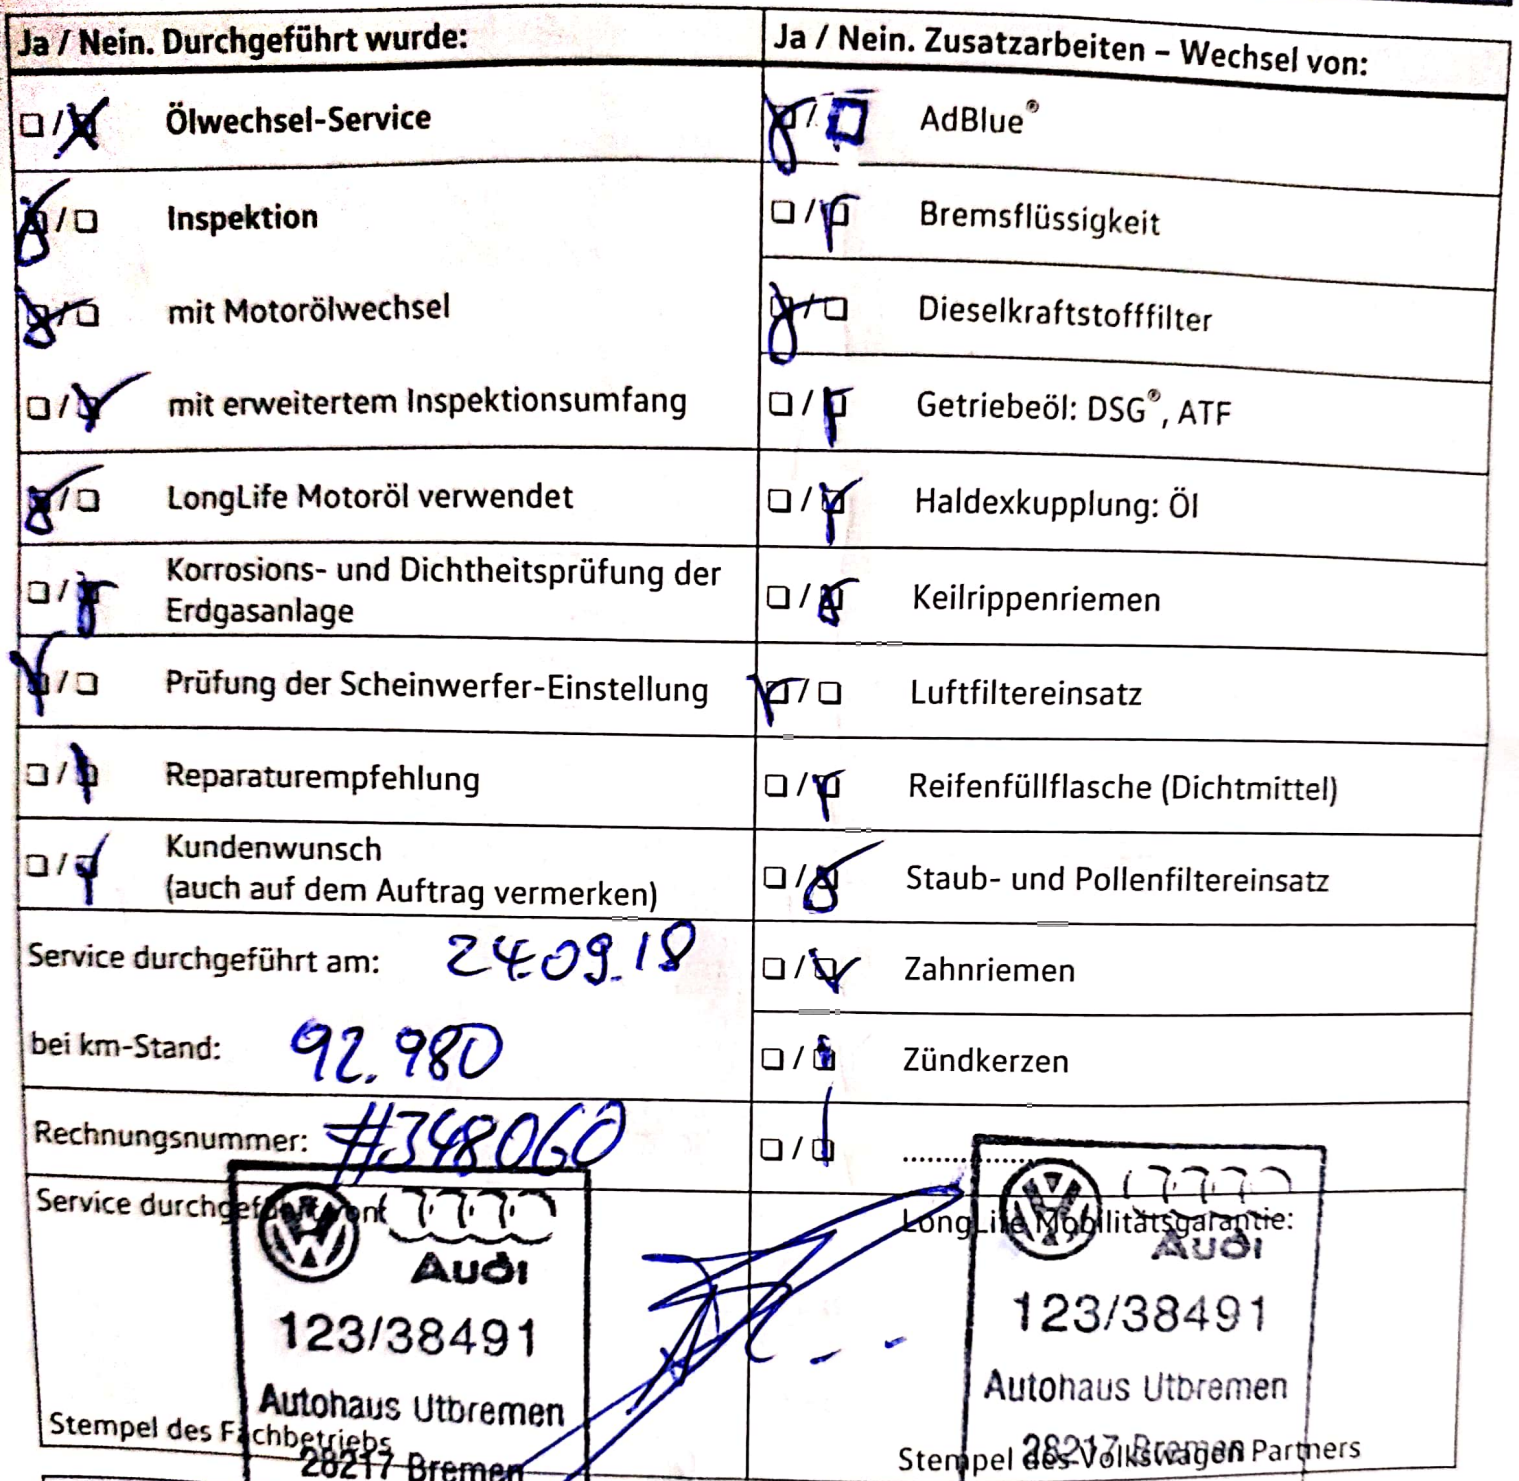 Ja / Nein. Durchgeführt wurde:
☐/☒ Ölwechsel-Service
☒/☐ Inspektion
☒/☐ mit Motorölwechsel
☐/☒ mit erweitertem Inspektionsumfang
☒/☐ LongLife Motoröl verwendet
☐/☒ Korrosions- und Dichtheitsprüfung der
Erdgasanlage
☒/☐ Prüfung der Scheinwerfer-Einstellung
☐/☒ Reparaturempfehlung
☐/☒ Kundenwunsch
(auch auf dem Auftrag vermerken)
Service durchgeführt am: 24.09.18
bei km-Stand: 92.980
Rechnungsnummer: #348060
Service durchgeführt von:
Audi
123/38491
Autohaus Utbremen
28217 Bremen
Stempel des Fachbetriebs
Ja / Nein. Zusatzarbeiten – Wechsel von:
☒/☐ AdBlue®
☐/☒ Bremsflüssigkeit
☒/☐ Dieselkraftstofffilter
☐/☒ Getriebeöl: DSG®, ATF
☐/☒ Haldexkupplung: Öl
☐/☒ Keilrippenriemen
☒/☐ Luftfiltereinsatz
☐/☒ Reifenfüllflasche (Dichtmittel)
☐/☒ Staub- und Pollenfiltereinsatz
☐/☒ Zahnriemen
☐/☒ Zündkerzen
☐/☒ ..................
LongLife Mobilitätsgarantie:
Audi
123/38491
Autohaus Utbremen
28217 Bremen
Stempel des Volkswagen Partners